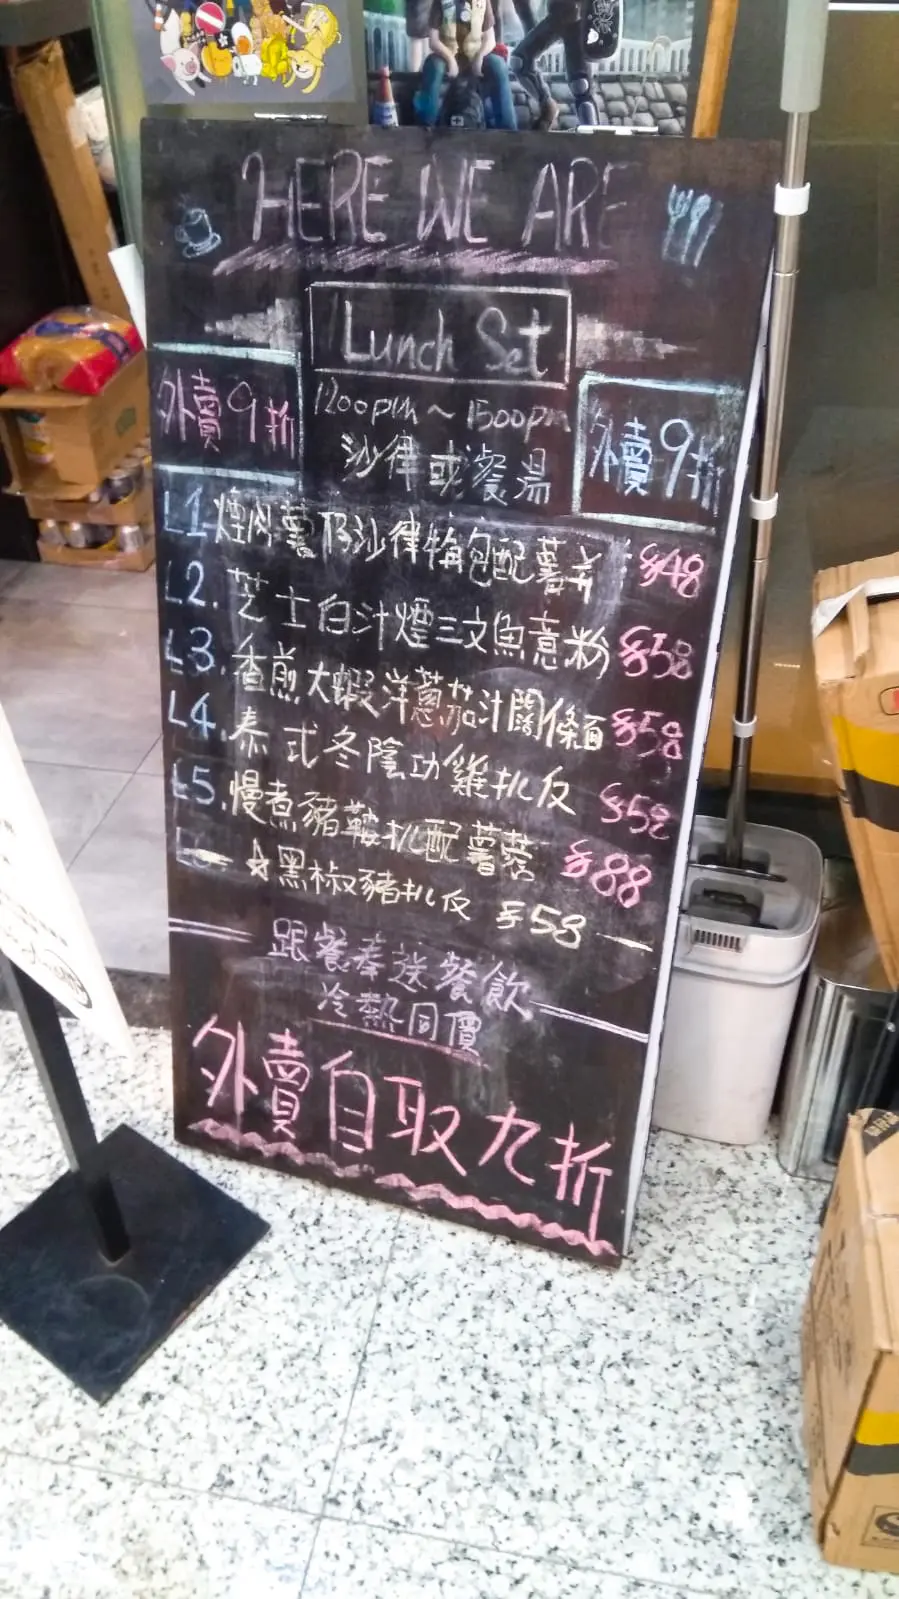 HERE WE ARE
Lunch Set
外賣9折
1200pm~1500pm
外賣9折
沙律或餐湯
L1 煙肉薯仔沙律牛角包配薯 $48
L2. 芝士白汁煙三文魚意粉 $58
L3. 香煎大蝦洋蔥茄汁闊條面 $58
L4. 泰式冬陰功雞扒反 $58
L5. 慢煮豬鞍扒配薯蓉 $88
☆黑椒豬扒反 $58
跟餐奉送餐飲
冷熱同價
外賣自取九折